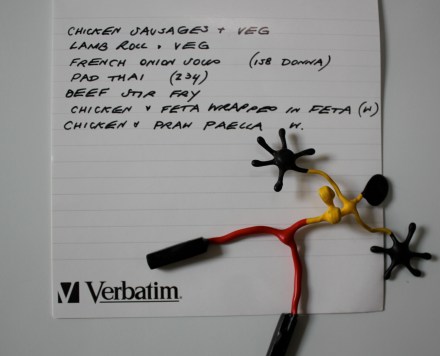 CHICKEN SAUSAGES + VEG
LAMB ROLL + VEG
FRENCH ONION (158 DONNA)
PAD THAI (234)
BEEF STIR FRY
CHICKEN & FETA WRAPPED IN FETA (W)
CHICKEN & PRAN PAELLA W.
Verbatim.